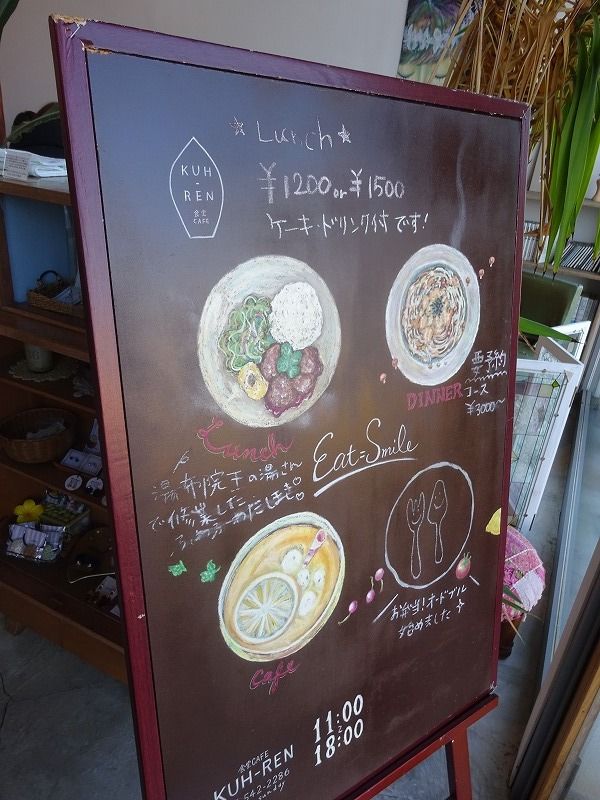 ☆Lunch☆
KUH
-
REN
食堂
CAFE
¥1200 or ¥1500
ケーキ・ドリンク付です!
要予約
DINNER コース
¥3000〜
Lunch
Eat=Smile
湯布院 玉の湯さん
で修業した
お弁当!オードブル
始めました
cafe
11:00
18:00
食堂CAFE
KUH-REN
542-2286